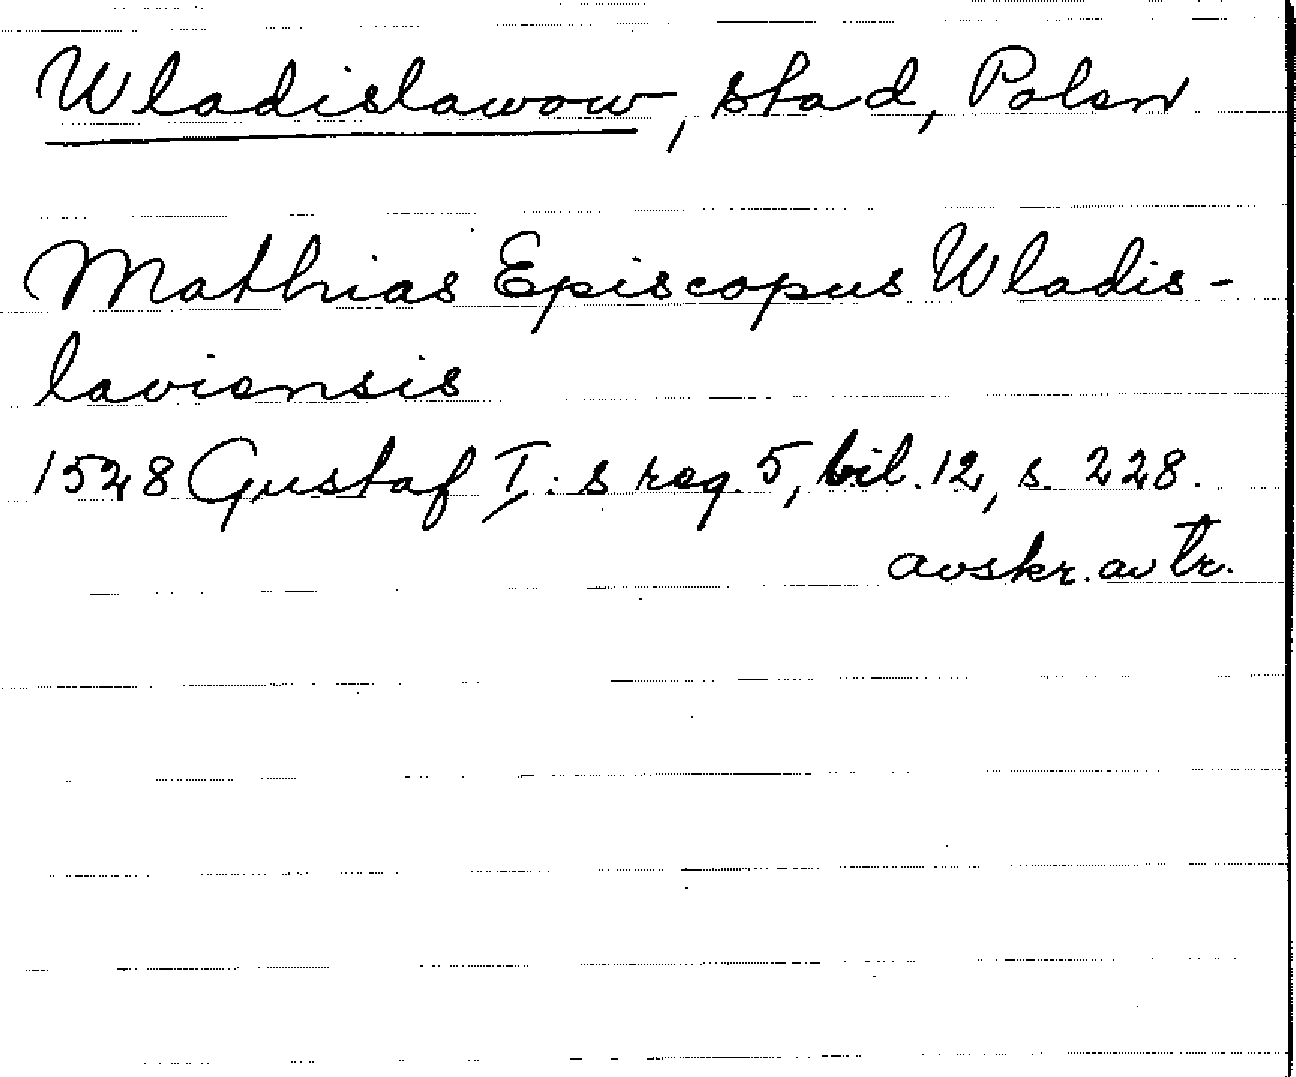 Wladislawow, stad, Polen
Mathias Episcopus Wladis-
laviensis
1528 Gustaf I:s reg. 5, bil. 12, s. 228.
avskr. av tr.